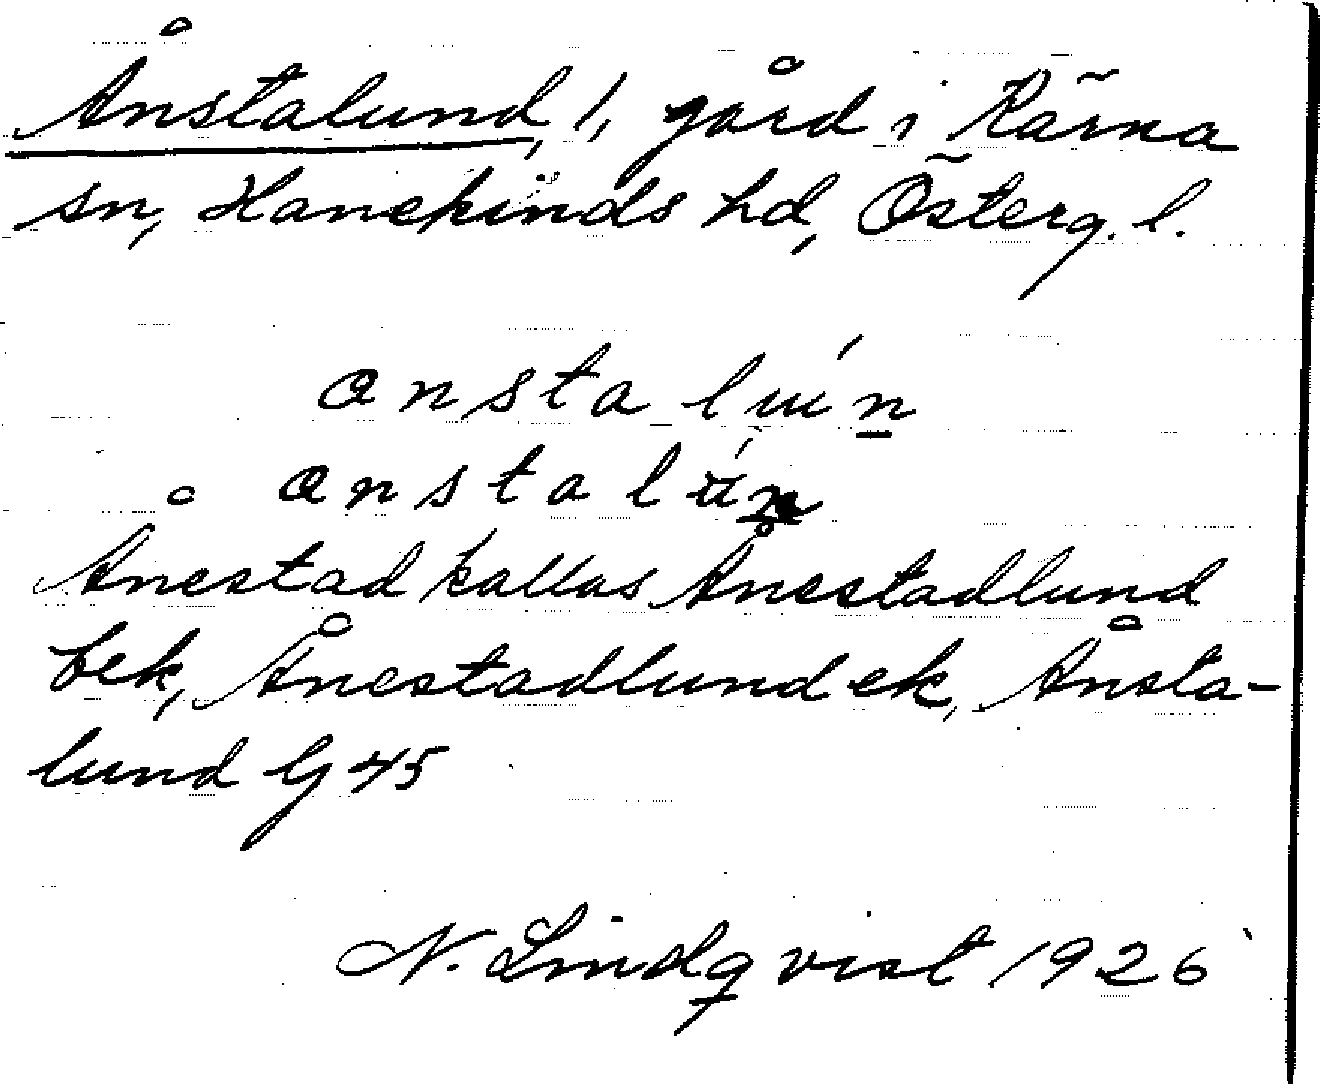 Ånstalund, 1, gård i Kärna
sn, Hanekinds hd, Österg. l.
ansta luńn
anstalún
Ånestad kallas Ånestadlund
bek, Ånestadlund ek, Ånsta-
lund G 45
N. Lindqvist 1926